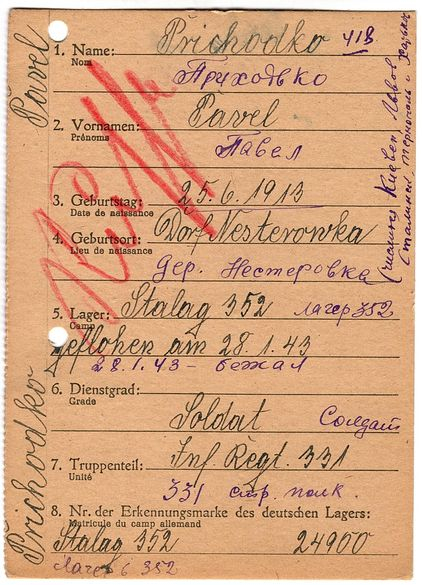 Pavel
Prichodko
1. Name: Prichodko 418
Nom
Приходько
2. Vornamen: Pavel
Prénoms
Павел
3. Geburtstag: 25.6.1913
Date de naissance
4. Geburtsort: Dorf Nesterowka
Lieu de naissance
дер. Нестеровка
5. Lager: Stalag 352 лагер 352
Camp
geflohen am 28.1.43
28.1.43 - бежал
6. Dienstgrad:
Grade
Soldat Солдат
7. Truppenteil: Inf. Regt. 331
Unité
331 стр. полк.
8. Nr. der Erkennungsmarke des deutschen Lagers:
Matricule du camp allemand
Stalag 352 24900
Лагер 352
Львов